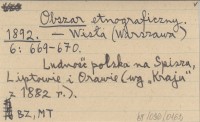 Obszar etnograficzny.
1892. — Wisła (Warszawa)
6: 669-670.
Ludność polska na Spiszu,
Liptowie i Orawie (wg „Kraju"
z 1882 r.).
BZ, MT